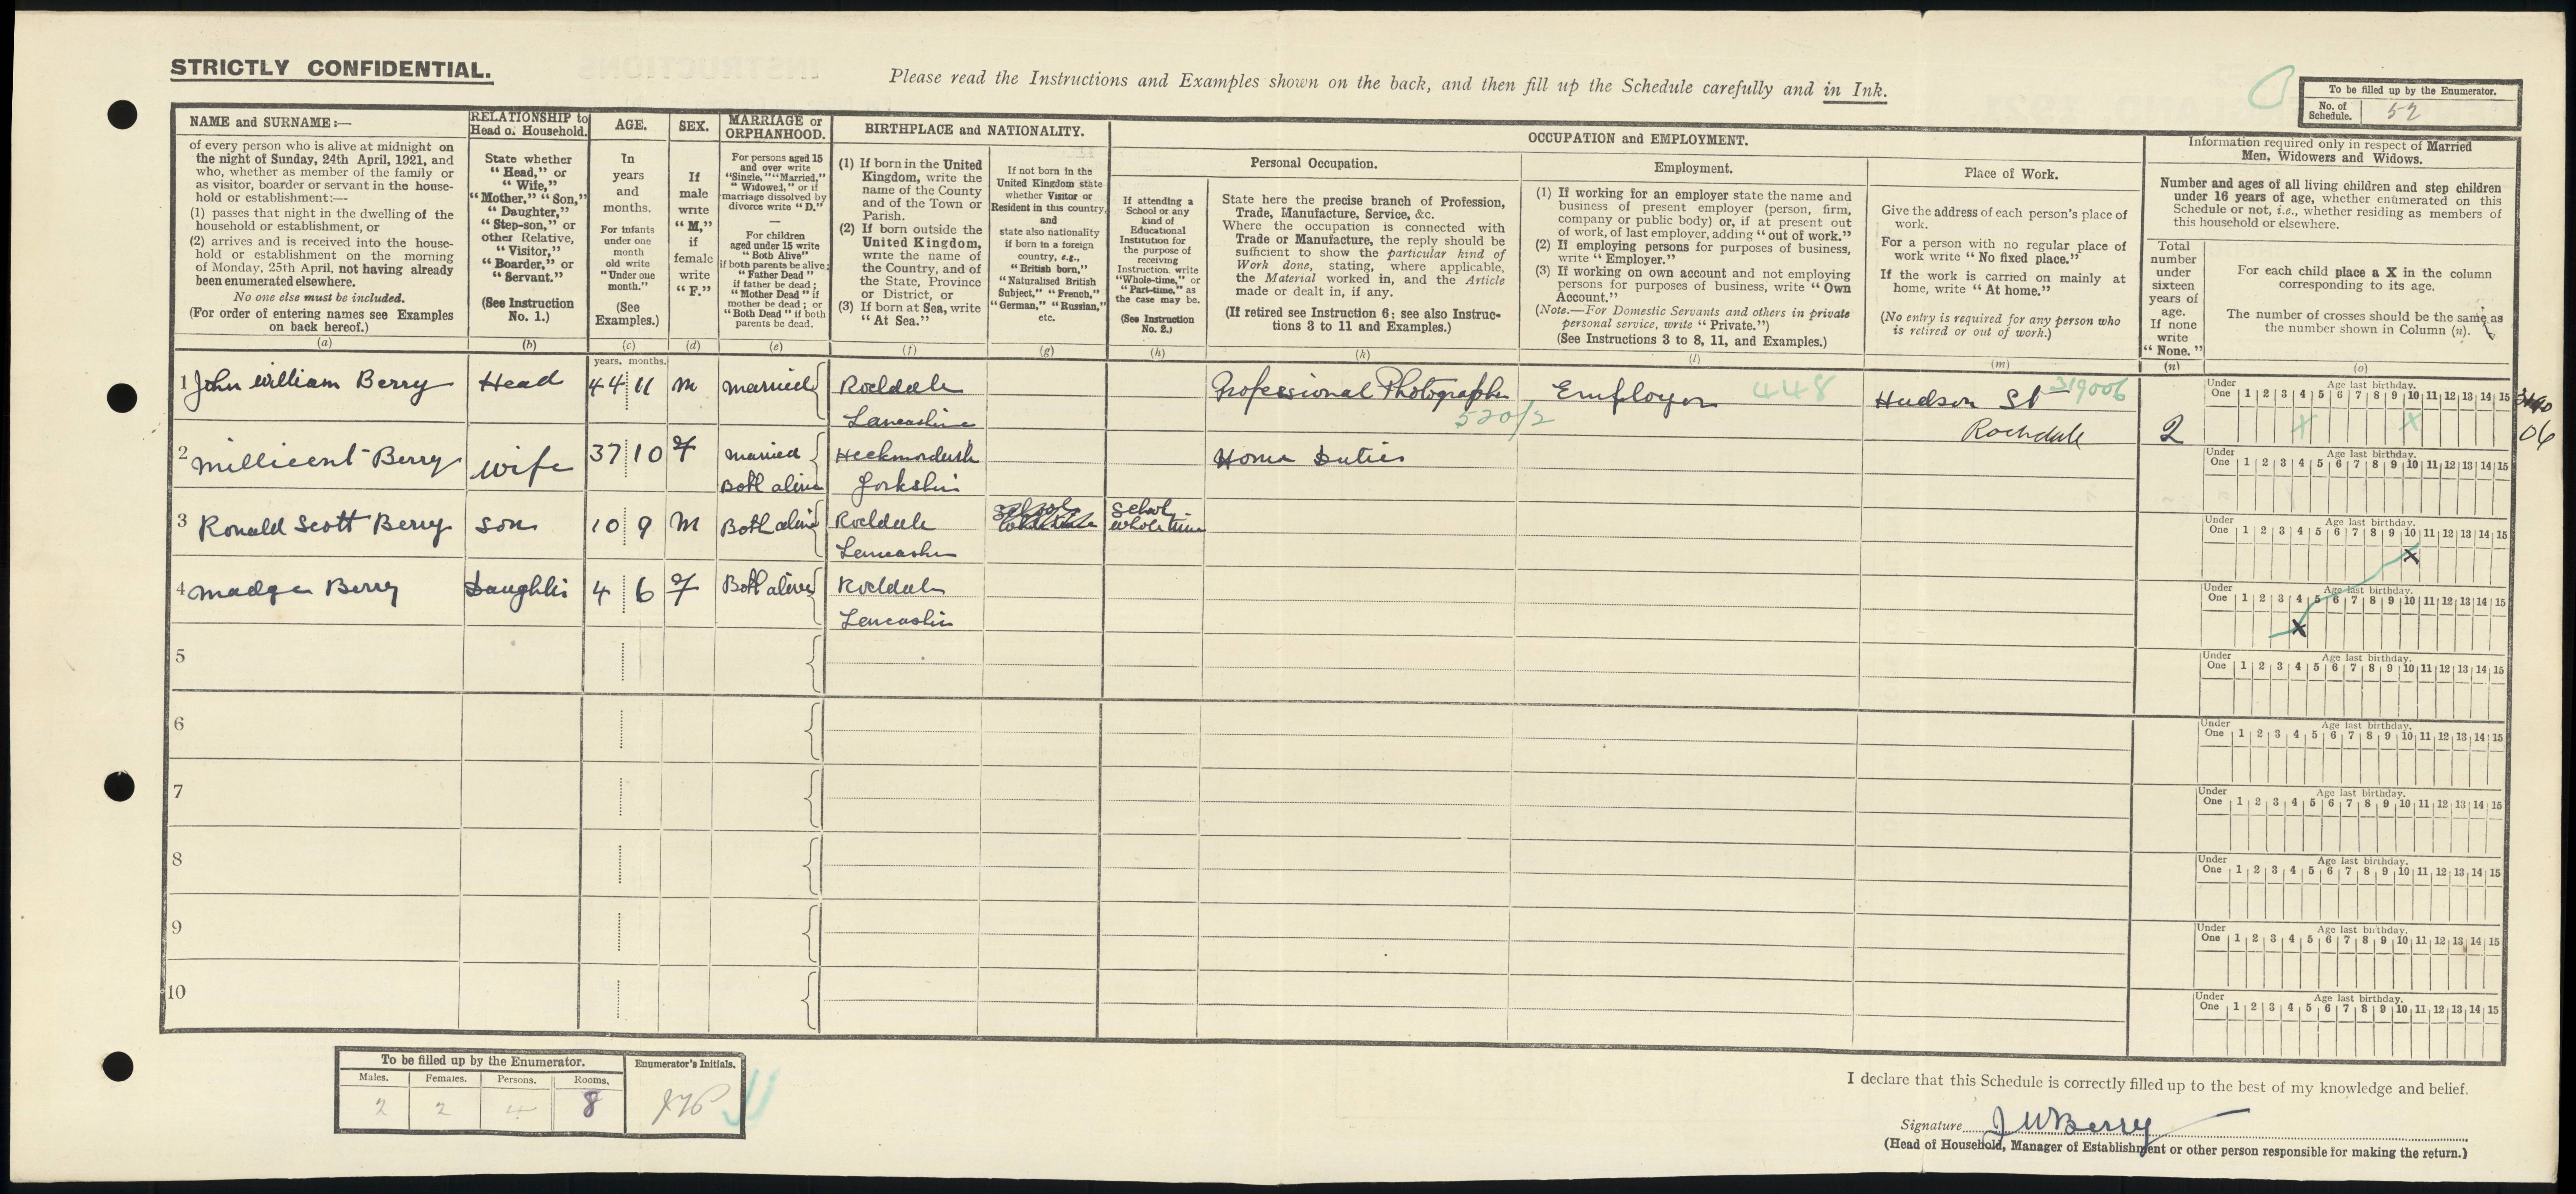 STRICTLY CONFIDENTIAL.
Please read the Instructions and Examples shown on the back, and then fill up the Schedule carefully and in Ink.
To be filled up by the Enumerator.
No. of Schedule. 52
NAME and SURNAME:—
of every person who is alive at midnight on
the night of Sunday, 24th April, 1921, and
who, whether as member of the family or
as visitor, boarder or servant in the house-
hold or establishment:—
(1) passes that night in the dwelling of the
household or establishment, or
(2) arrives and is received into the house-
hold or establishment on the morning
of Monday, 25th April, not having already
been enumerated elsewhere.
No one else must be included.
(For order of entering names see Examples
on back hereof.)
(a)
RELATIONSHIP to
Head o. Household.
State whether
"Head," or
"Wife,"
"Mother," "Son,"
"Daughter,"
"Step-son," or
other Relative,
"Visitor,"
"Boarder," or
"Servant."
(See Instruction
No. 1.)
(b)
AGE.
In
years
and
months.
For infants
under one
month
old write
"Under one
month."
(See
Examples.)
(c)
SEX.
If
male
write
"M,"
if
female
write
"F."
(d)
MARRIAGE or
ORPHANHOOD.
For persons aged 15
and over write
"Single," "Married,"
"Widowed," or if
marriage dissolved by
divorce write "D."
—
For children
aged under 15 write
"Both Alive"
if both parents be alive;
"Father Dead"
if father be dead;
"Mother Dead" if
mother be dead; or
"Both Dead" if both
parents be dead.
(e)
BIRTHPLACE and NATIONALITY.
(1) If born in the United
Kingdom, write the
name of the County
and of the Town or
Parish.
(2) If born outside the
United Kingdom,
write the name of
the Country, and of
the State, Province
or District, or
(3) If born at Sea, write
"At Sea."
(f)
If not born in the
United Kingdom state
whether Visitor or
Resident in this country,
and
state also nationality
if born in a foreign
country, e.g.,
"British born,"
"Naturalised British
Subject," "French,"
"German," "Russian,"
etc.
(g)
OCCUPATION and EMPLOYMENT.
If attending a
School or any
kind of
Educational
Institution for
the purpose of
receiving
Instruction, write
"Whole-time," or
"Part-time," as
the case may be.
(See Instruction
No. 2.)
(h)
Personal Occupation.
State here the precise branch of Profession,
Trade, Manufacture, Service, &c.
Where the occupation is connected with
Trade or Manufacture, the reply should be
sufficient to show the particular kind of
Work done, stating, where applicable,
the Material worked in, and the Article
made or dealt in, if any.
(If retired see Instruction 6; see also Instruc-
tions 3 to 11 and Examples.)
(k)
Employment.
(1) If working for an employer state the name and
business of present employer (person, firm,
company or public body) or, if at present out
of work, of last employer, adding "out of work."
(2) If employing persons for purposes of business,
write "Employer."
(3) If working on own account and not employing
persons for purposes of business, write "Own
Account."
(Note.—For Domestic Servants and others in private
personal service, write "Private.")
(See Instructions 3 to 8, 11, and Examples.)
(l)
Place of Work.
Give the address of each person's place of
work.
For a person with no regular place of
work write "No fixed place."
If the work is carried on mainly at
home, write "At home."
(No entry is required for any person who
is retired or out of work.)
(m)
Information required only in respect of Married
Men, Widowers and Widows.
Number and ages of all living children and step children
under 16 years of age, whether enumerated on this
Schedule or not, i.e., whether residing as members of
this household or elsewhere.
Total
number
under
sixteen
years of
age.
If none
write
"None."
(n)
For each child place a X in the column
corresponding to its age.
The number of crosses should be the same as
the number shown in Column (n).
(o)
years. months.
1 John William Berry Head 44 11 M Married Rochdale Professional Photographer Employer 448 Hudson St 319006
Lancashire 520/2 Rochdale 2
06
Under One Age last birthday. 1 2 3 4 5 6 7 8 9 10 11 12 13 14 15
X X
2 Millicent Berry Wife 37 10 F Married Heckmondwike Home Duties
Both alive Yorkshire
Under One Age last birthday. 1 2 3 4 5 6 7 8 9 10 11 12 13 14 15
3 Ronald Scott Berry Son 10 9 M Both alive Rochdale School
Lancashire whole time
Under One Age last birthday. 1 2 3 4 5 6 7 8 9 10 11 12 13 14 15
X
4 Madge Berry Daughter 4 6 F Both alive Rochdale
Lancashire
Under One Age last birthday. 1 2 3 4 5 6 7 8 9 10 11 12 13 14 15
X
5
Under One Age last birthday. 1 2 3 4 5 6 7 8 9 10 11 12 13 14 15
6
Under One Age last birthday. 1 2 3 4 5 6 7 8 9 10 11 12 13 14 15
7
Under One Age last birthday. 1 2 3 4 5 6 7 8 9 10 11 12 13 14 15
8
Under One Age last birthday. 1 2 3 4 5 6 7 8 9 10 11 12 13 14 15
9
Under One Age last birthday. 1 2 3 4 5 6 7 8 9 10 11 12 13 14 15
10
Under One Age last birthday. 1 2 3 4 5 6 7 8 9 10 11 12 13 14 15
To be filled up by the Enumerator.
Enumerator's Initials.
Males. Females. Persons. Rooms.
2 2 4 8
I declare that this Schedule is correctly filled up to the best of my knowledge and belief.
Signature J W Berry
(Head of Household, Manager of Establishment or other person responsible for making the return.)